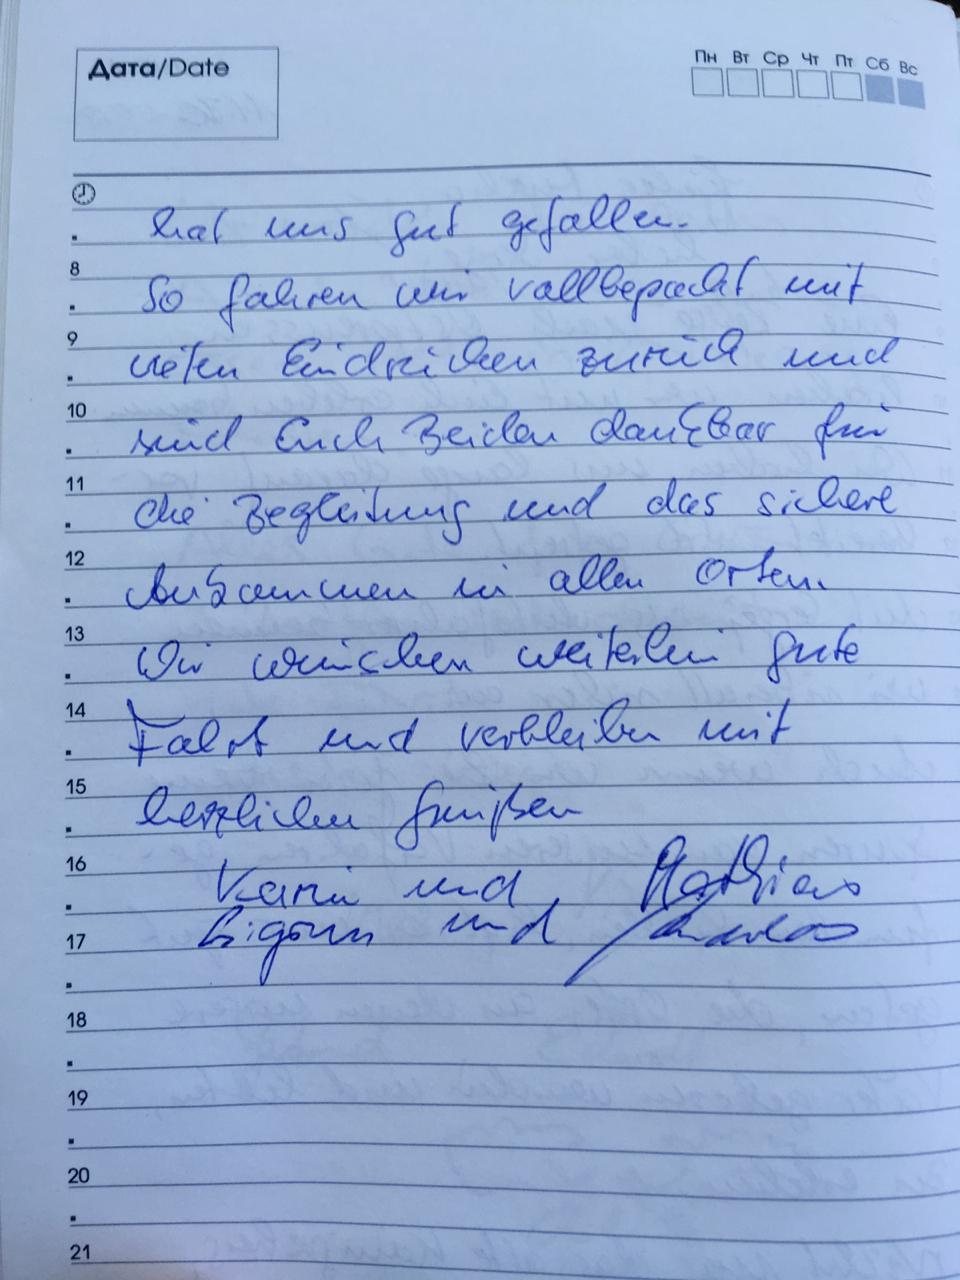 Дата/Date
Пн Вт Ср Чт Пт Сб Вс
hat uns gut gefallen.
8
So fahren wir vollbepackt mit
9
vielen Eindrücken zurück und
10
sind Euch Beiden dankbar für
11
die Begleitung und das sichere
12
Ankommen in allen Orten.
13
Wir wünschen weiterhin gute
14
Fahrt und verbleiben mit
15
herzlichen Grüßen
16
Karin und Mathias
17
Sigrun und
18
19
20
21